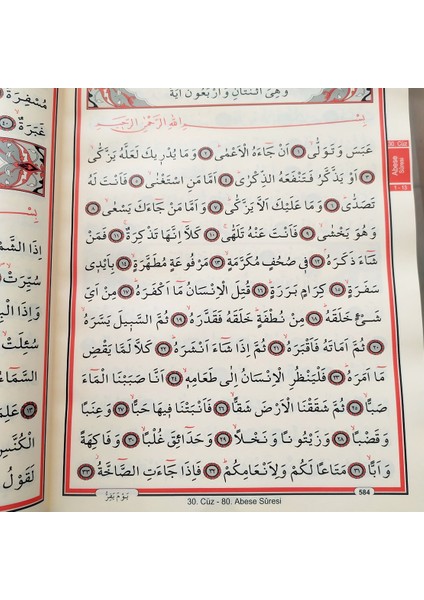 وَهِىَ اثْنَتَانِ وَاَرْبَعُونَ اٰيَةً
بِسْمِ اللّٰهِ الرَّحْمٰنِ الرَّحِيمِ
عَبَسَ وَتَوَلّٰىۙ ﴿١﴾ اَنْ جَٓاءَهُ الْاَعْمٰىۜ ﴿٢﴾ وَمَا يُدْرِيكَ لَعَلَّهُ يَزَّكّٰىۙ
﴿٣﴾ اَوْ يَذَّكَّرُ فَتَنْفَعَهُ الذِّكْرٰىۜ ﴿٤﴾ اَمَّا مَنِ اسْتَغْنٰىۙ ﴿٥﴾ فَاَنْتَ لَهُ
تَصَدّٰىۜ ﴿٦﴾ وَمَا عَلَيْكَ اَلَّا يَزَّكّٰىۜ ﴿٧﴾ وَاَمَّا مَنْ جَٓاءَكَ يَسْعٰىۙ ﴿٨﴾
وَهُوَ يَخْشٰىۙ ﴿٩﴾ فَاَنْتَ عَنْهُ تَلَهّٰىۚ ﴿١٠﴾ كَلَّٓا اِنَّهَا تَذْكِرَةٌۚ ﴿١١﴾ فَمَنْ
شَٓاءَ ذَكَرَهُۢ ﴿١٢﴾ فِى صُحُفٍ مُكَرَّمَةٍۙ ﴿١٣﴾ مَرْفُوعَةٍ مُطَهَّرَةٍۙ ﴿١٤﴾ بِاَيْدِى
سَفَرَةٍۙ ﴿١٥﴾ كِرَامٍ بَرَرَةٍۜ ﴿١٦﴾ قُتِلَ الْاِنْسَانُ مَٓا اَكْفَرَهُۜ ﴿١٧﴾ مِنْ اَىِّ
شَىْءٍ خَلَقَهُۜ ﴿١٨﴾ مِنْ نُطْفَةٍۜ خَلَقَهُ فَقَدَّرَهُۙ ﴿١٩﴾ ثُمَّ السَّبِيلَ يَسَّرَهُۙ
﴿٢٠﴾ ثُمَّ اَمَاتَهُ فَاَقْبَرَهُۙ ﴿٢١﴾ ثُمَّ اِذَا شَٓاءَ اَنْشَرَهُۜ ﴿٢٢﴾ كَلَّا لَمَّا يَقْضِ
مَٓا اَمَرَهُۜ ﴿٢٣﴾ فَلْيَنْظُرِ الْاِنْسَانُ اِلٰى طَعَامِهِۙ ﴿٢٤﴾ اَنَّا صَبَبْنَا الْمَٓاءَ
صَبًّاۙ ﴿٢٥﴾ ثُمَّ شَقَقْنَا الْاَرْضَ شَقًّاۙ ﴿٢٦﴾ فَاَنْبَتْنَا فِيهَا حَبًّاۙ ﴿٢٧﴾ وَعِنَبًا
وَقَضْبًاۙ ﴿٢٨﴾ وَزَيْتُونًا وَنَخْلًاۙ ﴿٢٩﴾ وَحَدَٓائِقَ غُلْبًاۙ ﴿٣٠﴾ وَفَاكِهَةً
وَاَبًّاۙ ﴿٣١﴾ مَتَاعًا لَكُمْ وَلِاَنْعَامِكُمْۜ ﴿٣٢﴾ فَاِذَا جَٓاءَتِ الصَّٓاخَّةُۘ ﴿٣٣﴾
يَوْمَ يَفِرُّ
584
30. Cüz - 80. Abese Sûresi
30. Cüz
Abese
Sûresi
مُسْفِرَةٌ
غَبَرَةٌ
اِذَا الشَّمْ
سُيِّرَتْ
وَاِذَا الْ
سُئِلَتْ
السَّمَٓاءُ
﴿١٣﴾ عَلِمَ
الْكُنَّسِ
لَقَوْلُ